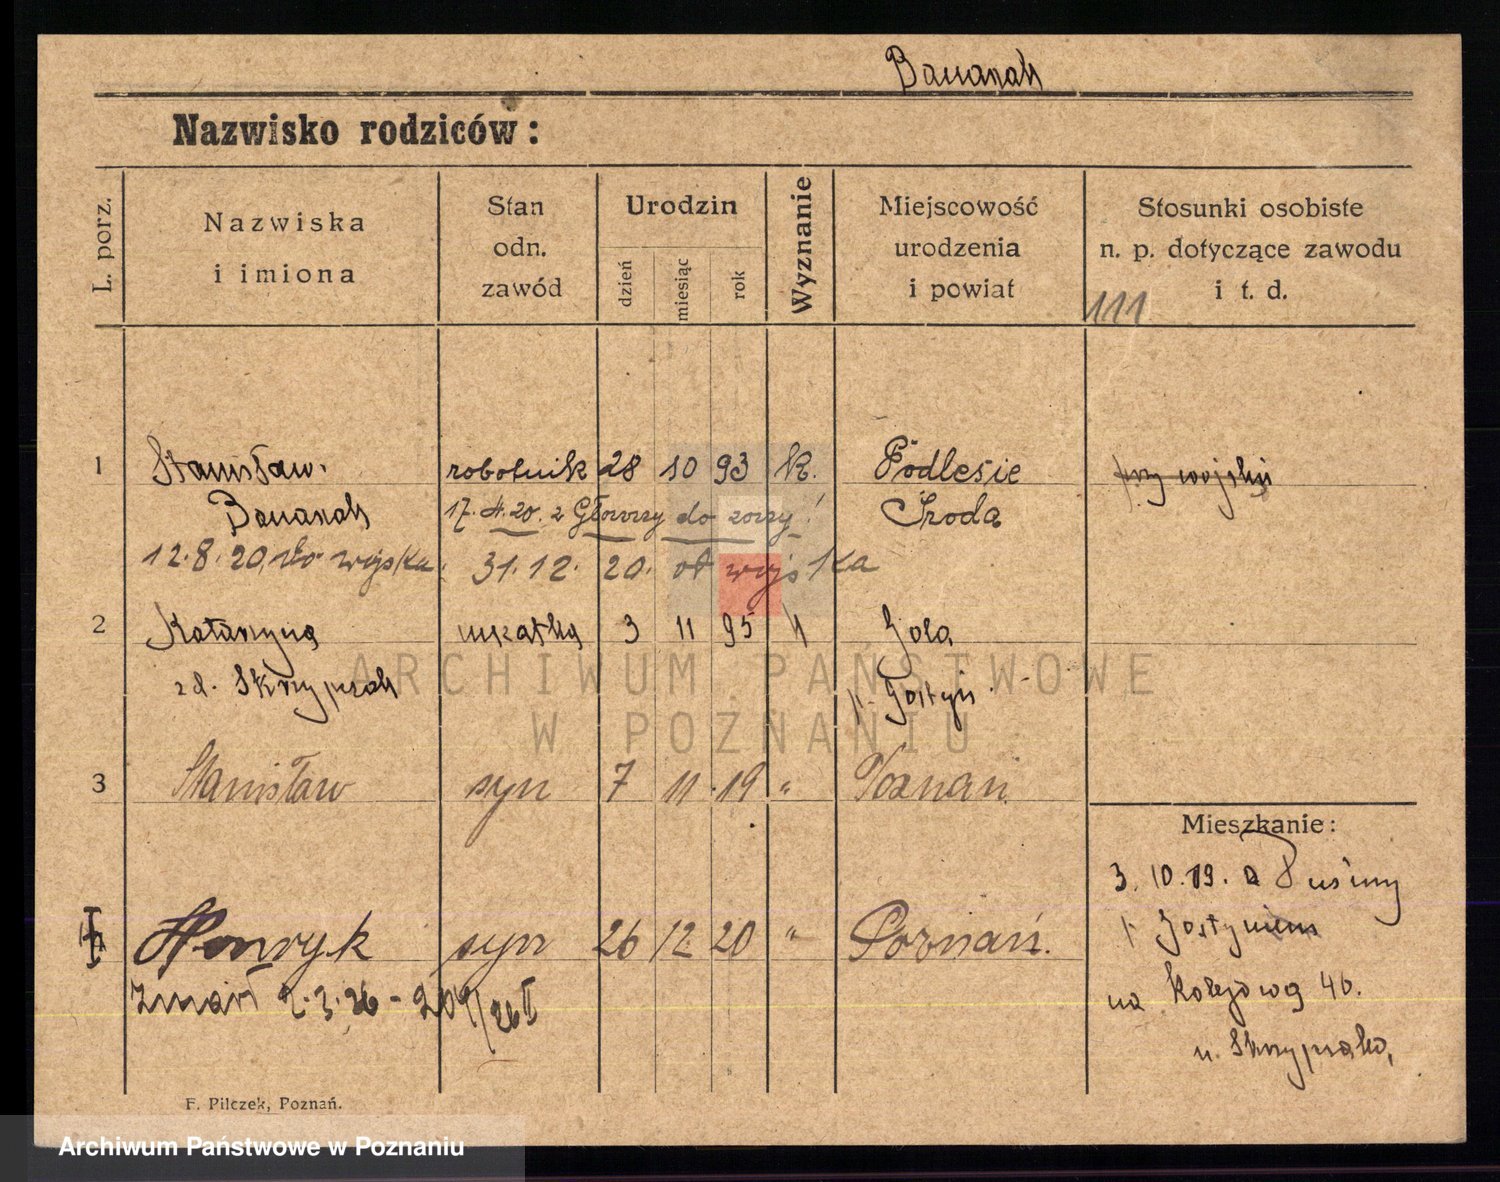 Banasak
Nazwisko rodziców:
L. porz.
Nazwiska
i imiona
Stan
odn.
zawód
Urodzin
dzień
miesiąc
rok
Wyznanie
Miejscowość
urodzenia
i powiat
Stosunki osobiste
n. p. dotyczące zawodu
i t. d.
111
1 Stanisław robotnik 28 10 93 k. Podlesie przy wojsku
Banasak Środa
17. 4. 20. z do
12. 8. 20. do wojska 31. 12. 20. od wojska
2 Katarzyna mężatka 3 11 95 " Gola
zd. Skrzypsak p. Gostyń
3 Stanisław syn 7 11 19 " Poznań
Mieszkanie:
3. 10. 19. z
p. Gostyniem
Henryk syn 26 12 20 " Poznań.
Zmarł 2. 3. 26 -
na Kolejową 46.
u. Skrzypsaka,
F. Pilczek, Poznań.
ARCHIWUM PAŃSTWOWE
W POZNANIU
Archiwum Państwowe w Poznaniu